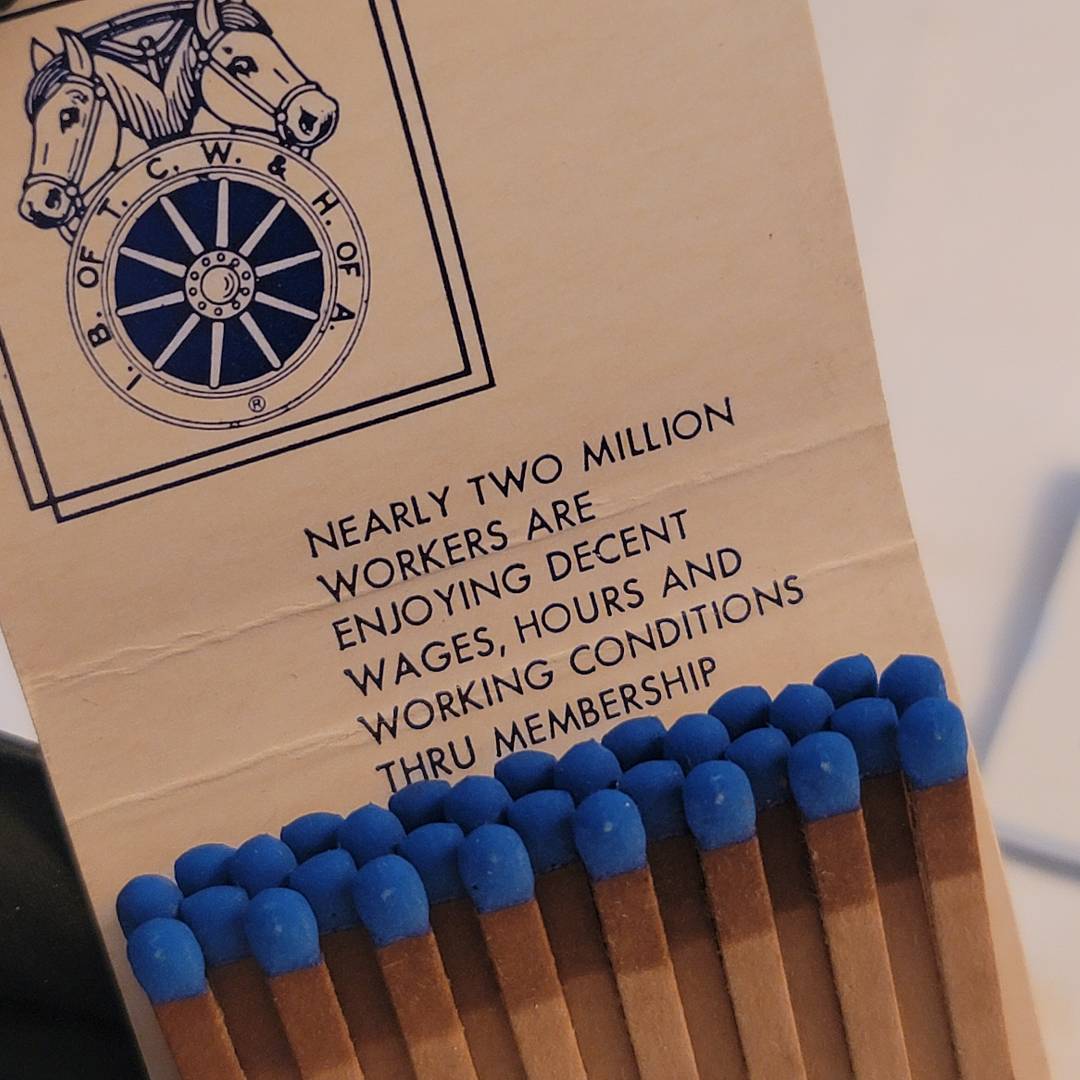 I. B. OF T. C. W. & H. OF A.
®
NEARLY TWO MILLION
WORKERS ARE
ENJOYING DECENT
WAGES, HOURS AND
WORKING CONDITIONS
THRU MEMBERSHIP